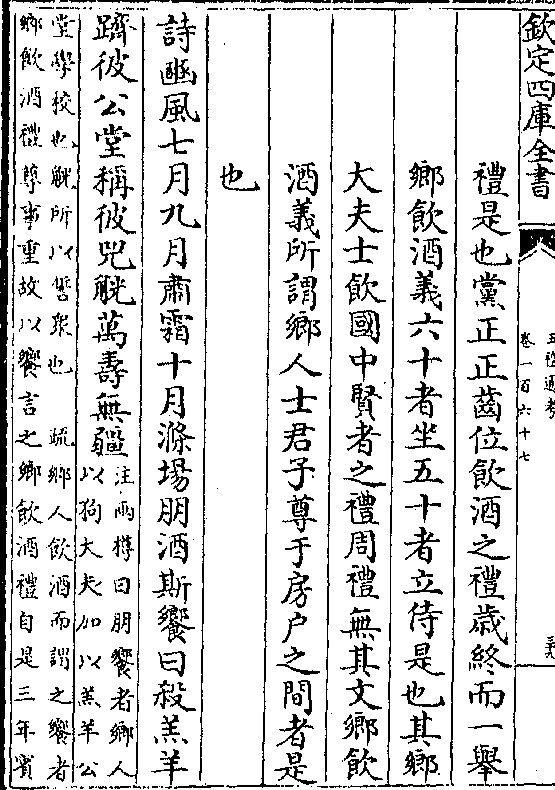 欽定四庫全書
五禮通考
卷一百六十七
禮是也黨正正齒位飲酒之禮歲終而一舉
鄉飲酒義六十者坐五十者立侍是也其鄉
大夫士飲國中賢者之禮周禮無其文鄉飲
酒義所謂鄉人士君子尊于房户之間者是
也
詩豳風七月九月肅霜十月滌場朋酒斯饗曰殺羔羊
躋彼公堂稱彼兕觥萬壽無疆注兩樽曰朋饗者鄉人
以狗大夫加以羔羊公
堂學校也觥所以誓衆也　疏鄉人飲酒而謂之饗者
鄉飲酒禮尊事重故以饗言之鄉飲酒禮自是三年賓